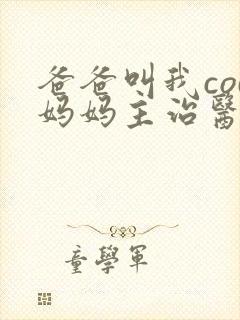 爸爸叫我co
妈妈主治醫
童學軍